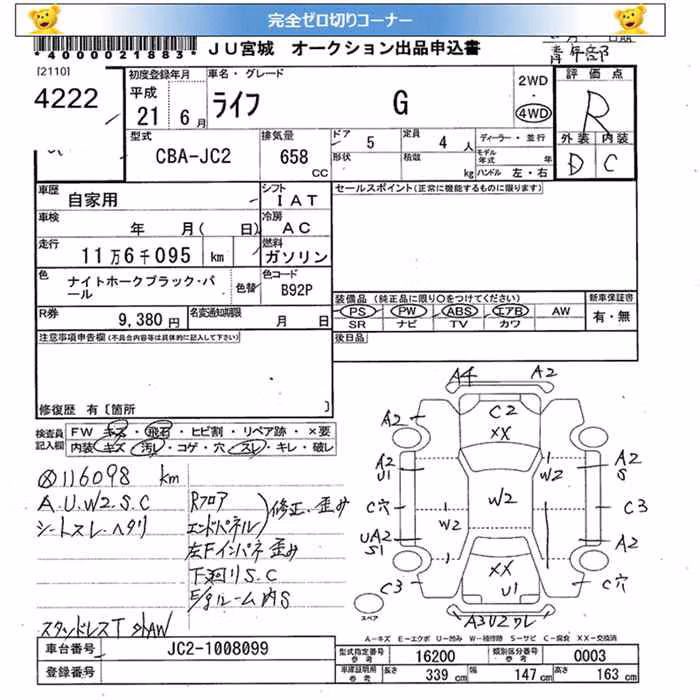 完全ゼロ切りコーナー
*40000021883*
JU宮城 オークション出品申込書
青年部
[2110]
4222
初度登録年月
平成
21 6月
車名・グレード
ライフ G
2WD
・
4WD
評価点
R
外装 内装
D C
型式
CBA-JC2
排気量
658
CC
ドア 5
定員 4 人
形状
積載 kg
ディーラー・並行
モデル年式 年
ハンドル 左・右
車歴
自家用
シフト
IAT
車検 年 月( 日)
冷房
AC
走行
11万6千095 km
燃料
ガソリン
色
ナイトホークブラック・パール
色替
色コード
B92P
R券
9,380円
名変通知期限
月 日
セールスポイント(正常に機能するものに限ります)
装備品 (純正品に限り○をつけてください)
PS PW ABS エアB AW
SR ナビ TV カワ
新車保証書
有・無
後日品
注意事項申告欄(不具合内容等は具体的に記入して下さい)
修復歴 有〔箇所
検査員記入欄
FW キズ・飛石・ヒビ割・リペア跡・×要
内装 キズ・汚レ・コゲ・穴・スレ・キレ・破レ
116098 km
A.U.W2.S.C
シートスレ.ヘタリ
Rフロア
エンドパネル
修正.歪み
左Fインパネ歪み
下廻りS.C
E/gルーム内S
スタッドレスT 外AW
A4 A2
A2
C2
XX
A2
U1
W2
A2
S
C穴
W2
W2
C3
UA2
S1
A2
C3
XX
U1
C穴
スペア
A3U2ワレ
A-キズ E-エクボ U-凹み W-補修跡 S-サビ C-腐食 XX-交換済
車台番号
JC2-1008099
登録番号
型式指定番号
参考
16200
類別区分番号
参考
0003
車庫証明用
参考
長さ 339 cm 幅 147 cm 高さ 163 cm